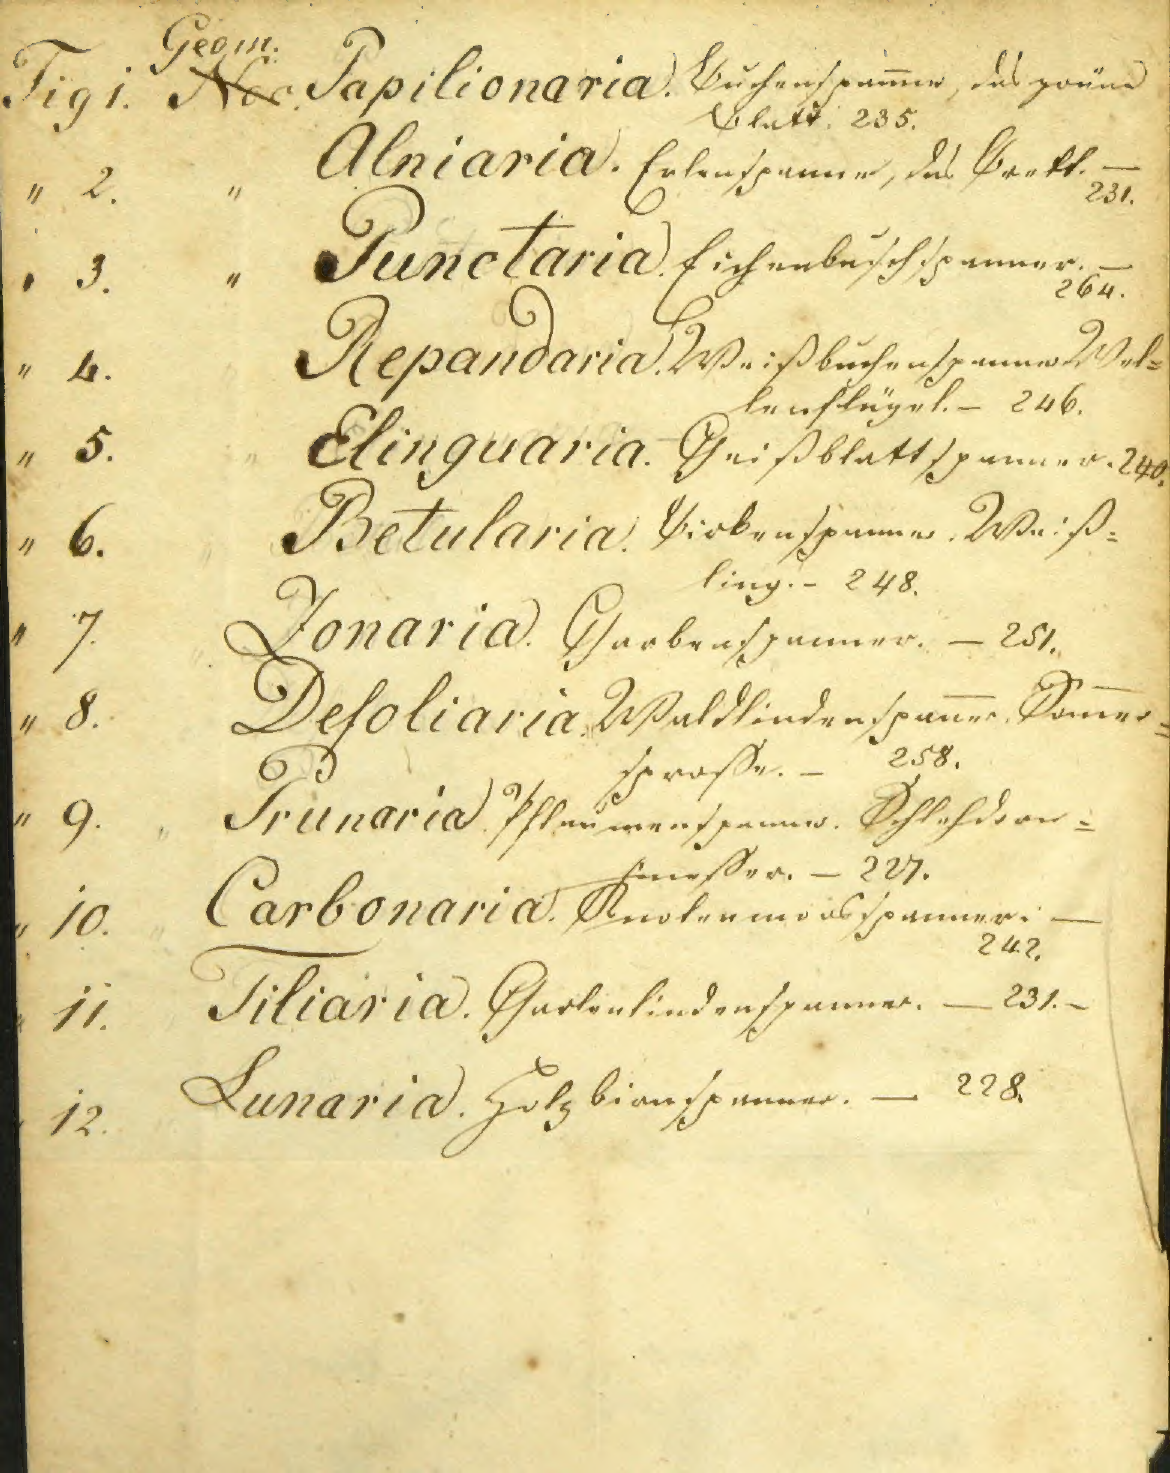 Geom.
Fig 1. Noc. Papilionaria. Buchenspanner, das grüne
Blatt. 235.
" 2. " Alniaria. Erlenspanner, das —
231.
" 3. " Punctaria. Eichenbuschspanner. —
264.
" 4. Repandaria. Weißbuchenspanner Wel=
lenflügel. — 246.
" 5. " Elinguaria. Geißblattspanner. 240.
" 6. " Betularia. Birkenspanner. Weiß=
ling. — 248.
" 7. " Zonaria. Garbenspanner. — 251.
" 8. Defoliaria. Waldlindenspanner. Sommer=
sprosse. — 258.
" 9. " Prunaria. Pflaumenspanner. Schlehdorn=
messer. — 227.
" 10. " Carbonaria. —
242.
" 11. Tiliaria. Gartenlindenspanner. — 231. —
12. Lunaria. Holzbirnspanner. — 228.